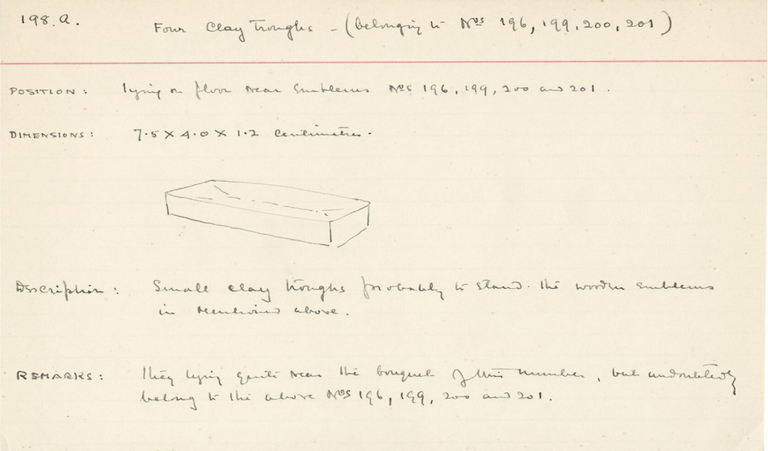 198.A. Four Clay Troughs - (belonging to Nos 196, 199, 200, 201)
POSITION: lying on floor near Emblems Nos 196, 199, 200 and 201.
DIMENSIONS: 7.5 X 4.0 X 1.2 Centimetres.
Description: Small clay troughs probably to stand the wooden emblems
in mentioned above.
REMARKS: They lying quite near the bouquet of this number, but undoubtedly
belong to the above Nos 196, 199, 200 and 201.